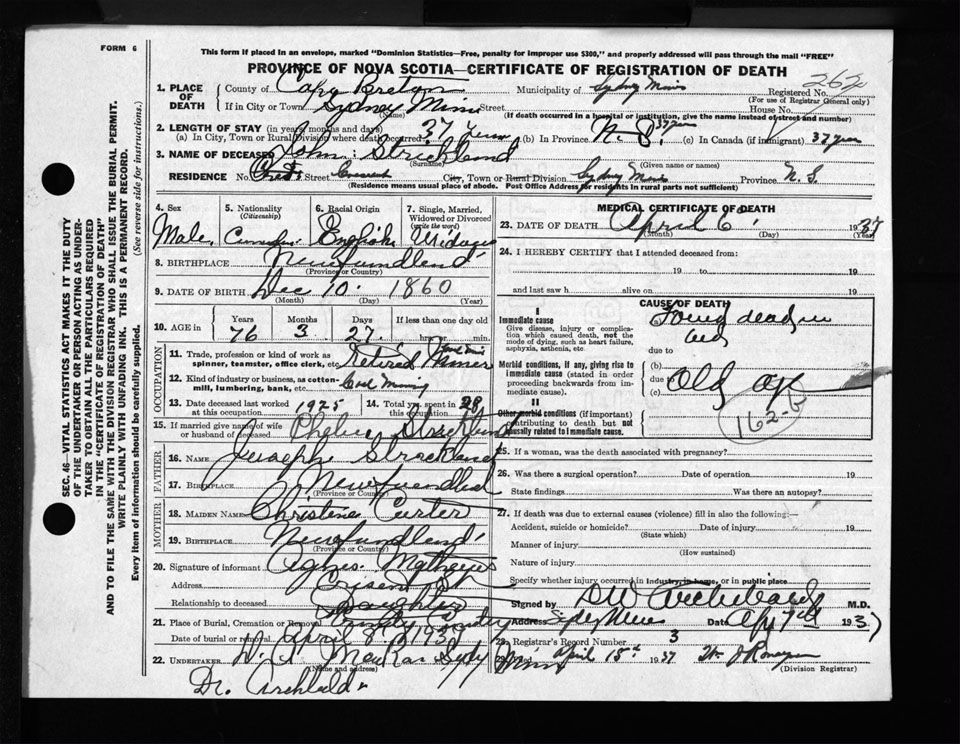 FORM 6
This form if placed in an envelope, marked "Dominion Statistics—Free, penalty for improper use $300," and properly addressed will pass through the mail "FREE"
PROVINCE OF NOVA SCOTIA—CERTIFICATE OF REGISTRATION OF DEATH
262
1. PLACE OF DEATH
County of Cape Breton Municipality of Sydney Mines Registered No.
(For use of Registrar General only)
If in City or Town Sydney Mines Street House No.
(Name) (If death occurred in a hospital or institution, give the name instead of street and number)
2. LENGTH OF STAY (in years, months and days)
(a) In City, Town or Rural Division where death occurred 37 years (b) In Province N.S. 37 years (c) In Canada (if immigrant) 37 years
3. NAME OF DECEASED John Strickland
(Surname) (Given name or names)
RESIDENCE No. Street Crescent City, Town or Rural Division Sydney Mines Province N.S.
(Residence means usual place of abode. Post Office Address for residents in rural parts not sufficient)
SEC. 46—VITAL STATISTICS ACT MAKES IT THE DUTY
OF THE UNDERTAKER OR PERSON ACTING AS UNDER-
TAKER TO OBTAIN ALL THE PARTICULARS REQUIRED
IN THE "CERTIFICATE OF REGISTRATION OF DEATH"
AND TO FILE THE SAME WITH THE DIVISION REGISTRAR WHO SHALL ISSUE THE BURIAL PERMIT.
WRITE PLAINLY WITH UNFADING INK. THIS IS A PERMANENT RECORD.
Every item of information should be carefully supplied.
(See reverse side for instructions.)
4. Sex
Male
5. Nationality
(Citizenship)
6. Racial Origin
English
7. Single, Married, Widowed or Divorced
(write the word)
8. BIRTHPLACE Newfundland
(Province or Country)
9. DATE OF BIRTH Dec 10 1860
(Month) (Day) (Year)
10. AGE in
Years Months Days If less than one day old
76 3 27 hrs. or min.
OCCUPATION
11. Trade, profession or kind of work as spinner, teamster, office clerk, etc. Retired Miner
12. Kind of industry or business, as cotton-mill, lumbering, bank, etc. Coal Mining
13. Date deceased last worked at this occupation 1925
14. Total years spent in this occupation 28
15. If married give name of wife or husband of deceased Strickland
FATHER
16. NAME Strickland
17. BIRTHPLACE Newfundland
(Province or Country)
MOTHER
18. MAIDEN NAME Christine Carter
19. BIRTHPLACE Newfundland
(Province or Country)
20. Signature of informant Agnes
Address
Relationship to deceased Daughter
21. Place of Burial, Cremation or Removal
Date of burial or removal April 8 1937
22. UNDERTAKER Sydney Mines
(Name and address)
Dr. Archibald
MEDICAL CERTIFICATE OF DEATH
23. DATE OF DEATH April 6 1937
(Month) (Day) (Year)
24. I HEREBY CERTIFY that I attended deceased from:
19 to 19
and last saw h alive on 19
CAUSE OF DEATH
I
Immediate cause
Give disease, injury or complication which caused death, not the mode of dying, such as heart failure, asphyxia, asthenia, etc.
(a) Found dead in bed
due to
Morbid conditions, if any, giving rise to immediate cause (stated in order proceeding backwards from immediate cause).
(b)
due
(c)
Old age
II
Other morbid conditions (if important) contributing to death but not causally related to immediate cause.
162-b
25. If a woman, was the death associated with pregnancy?
26. Was there a surgical operation? Date of operation 19
State findings Was there an autopsy?
27. If death was due to external causes (violence) fill in also the following:—
Accident, suicide or homicide? Date of injury 19
(State which)
Manner of injury
(How sustained)
Nature of injury
Specify whether injury occurred in industry, in home, or in public place
Signed by Archibald M.D.
Address Sydney Mines Date Apr 7th 1937
28. Registrar's Record Number 3
April 15th 1937
(Division Registrar)